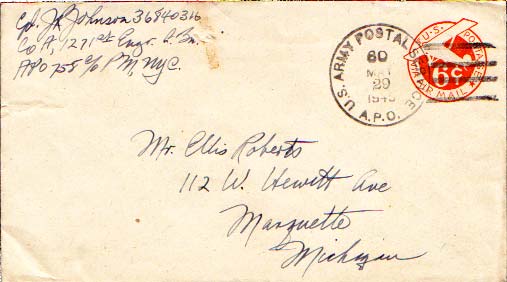 Cpl. J. R. Johnson 36840316
Co A, 1271st Engr. C. Bn.
APO 758 c/o P M, NYC.
U.S. ARMY POSTAL SERVICE
60
MAY
29
1945
A.P.O.
U.S. POSTAGE
6¢
VIA AIR MAIL
Mr. Ellis Roberts
112 W. Hewitt Ave
Marquette
Michigan